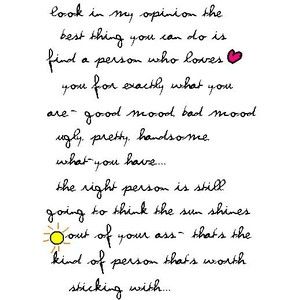 look in my opinion the
best thing you can do is
find a person who loves
you for exactly what you
are- good mood bad mood
ugly, pretty, handsome
what-you have...
the right person is still
going to think the sun shines
out of your ass- that's the
kind of person that's worth
sticking with...